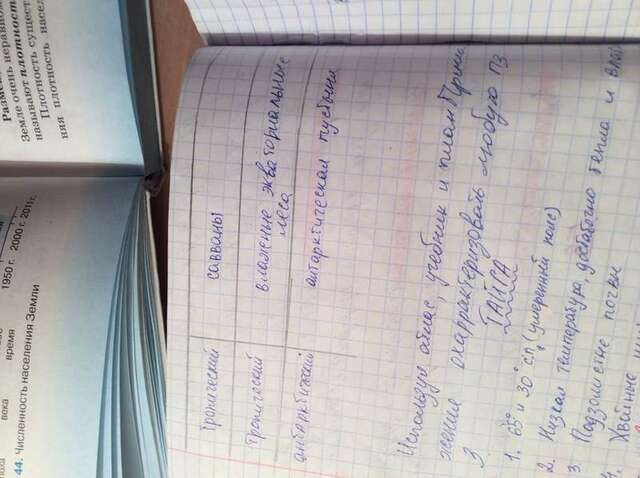 эпоха века время
1950 г. 2000 г. 2011 г.
44. Численность населения Земли
Разме
Земле очень неравном
называют плотност
Плотность сущест
няя плотность насел
тропический саванны
тропический влаженые экваториальные
леса
антарктический антарктическая пустыня
Используя атлас, учебник и план Прило
жения охаррактеризовать любую пз
3 ТАЙГА
1. 65° и 30° с.п. (умеренный пояс)
2. Низкая температура, достаточно тепла и влаги
3. Подзолистые почвы
4. Хвойные